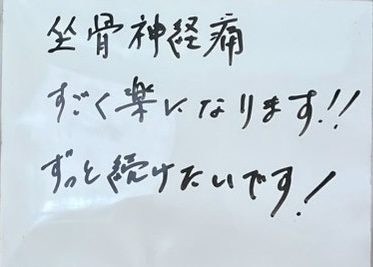 坐骨神経痛
すごく楽になります!!
ずっと続けたいです!